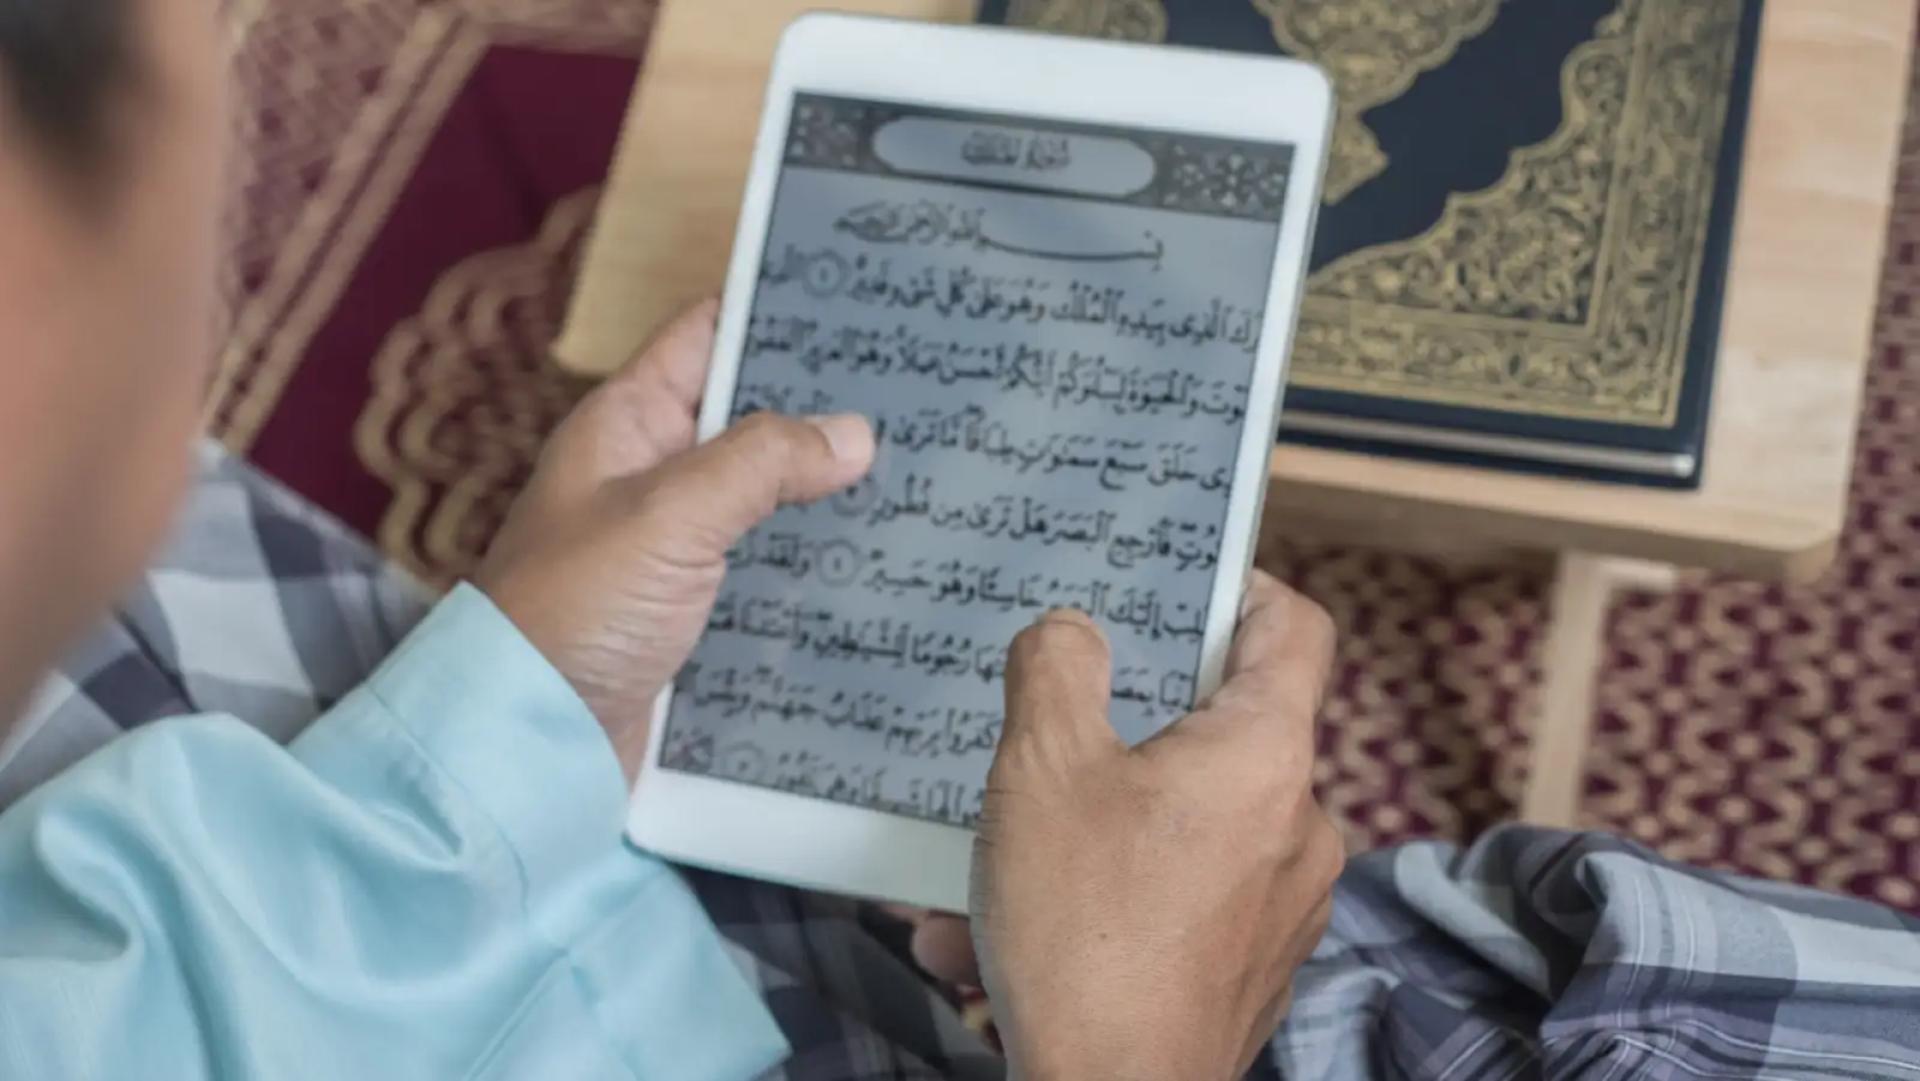 سورة الملك
بسم الله الرحمن الرحيم
رك الذى بيده الملك وهو على كل شىء قدير ١
وت والحيوة ليبلوكم أيكم أحسن عملا وهو العزيز الغفور
ى خلق سبع سموت طباقا ما ترى
وت فارجع البصر هل ترى من فطور ٣
لب إليك خاسئا وهو حسير ٤ ولقد
رجوما للشيطين وأعتدنا
كفروا بربهم عذاب جهنم وبئس